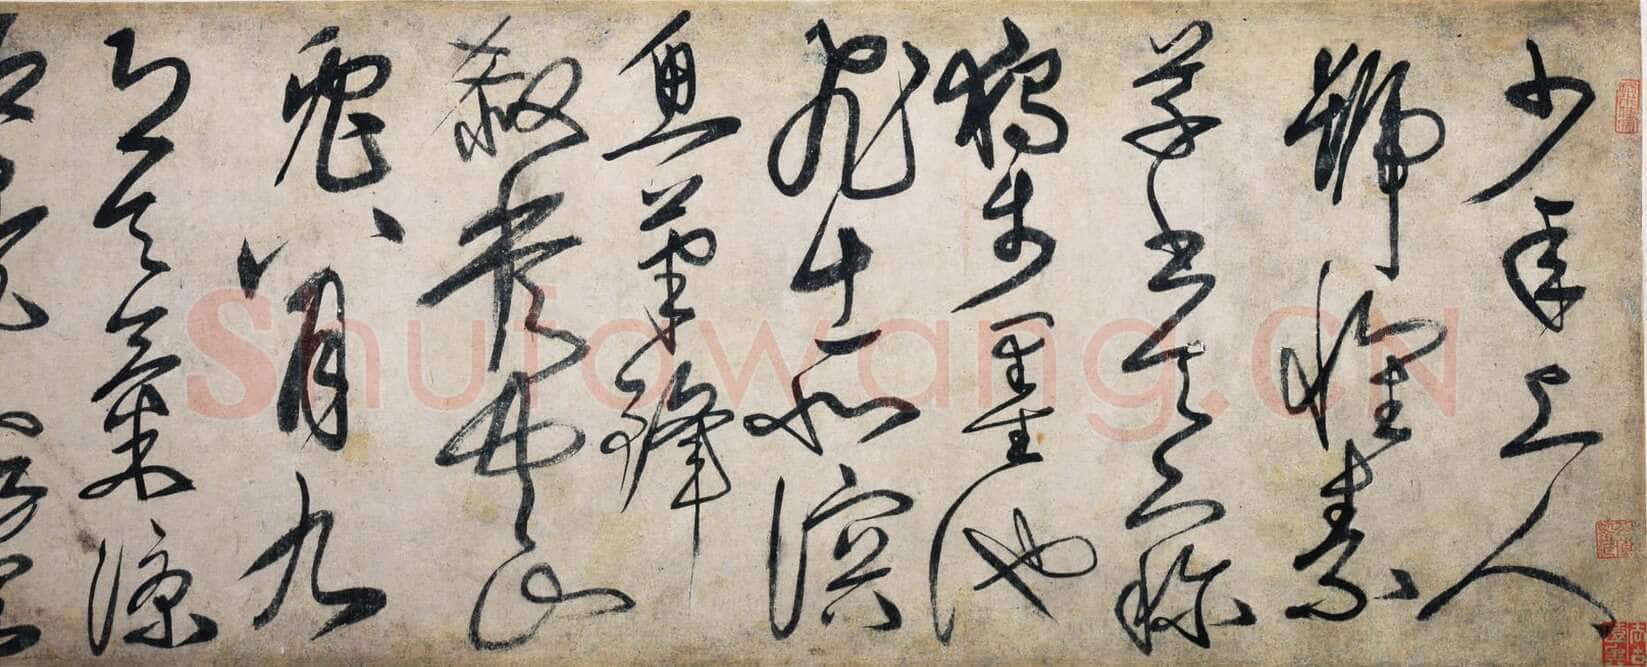 少年上人
號懷素
草書天下稱
獨步墨池
飛出北溟
魚筆鋒
殺盡中山
兔八月九
月天氣涼
Shufawang.CN